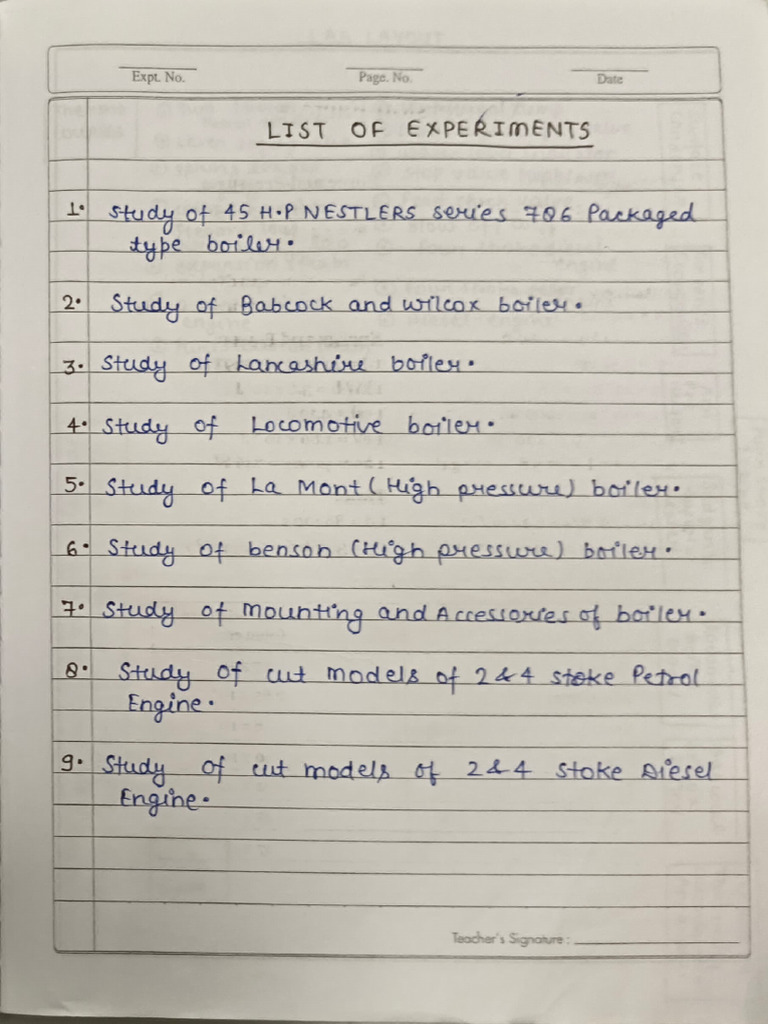 Expt. No. Page. No. Date
LIST OF EXPERIMENTS
1. Study of 45 H.P NESTLERS series 786 Packaged
type boiler.
2. Study of Babcock and Wilcox boiler.
3. Study of Lancashire boiler.
4. Study of Locomotive boiler.
5. Study of La Mont (High pressure) boiler.
6. Study of benson (High pressure) boiler.
7. Study of mounting and Accessories of boiler.
8. Study of cut models of 2 & 4 stoke Petrol
Engine.
9. Study of cut models of 2 & 4 stoke Diesel
Engine.
Teacher's Signature :